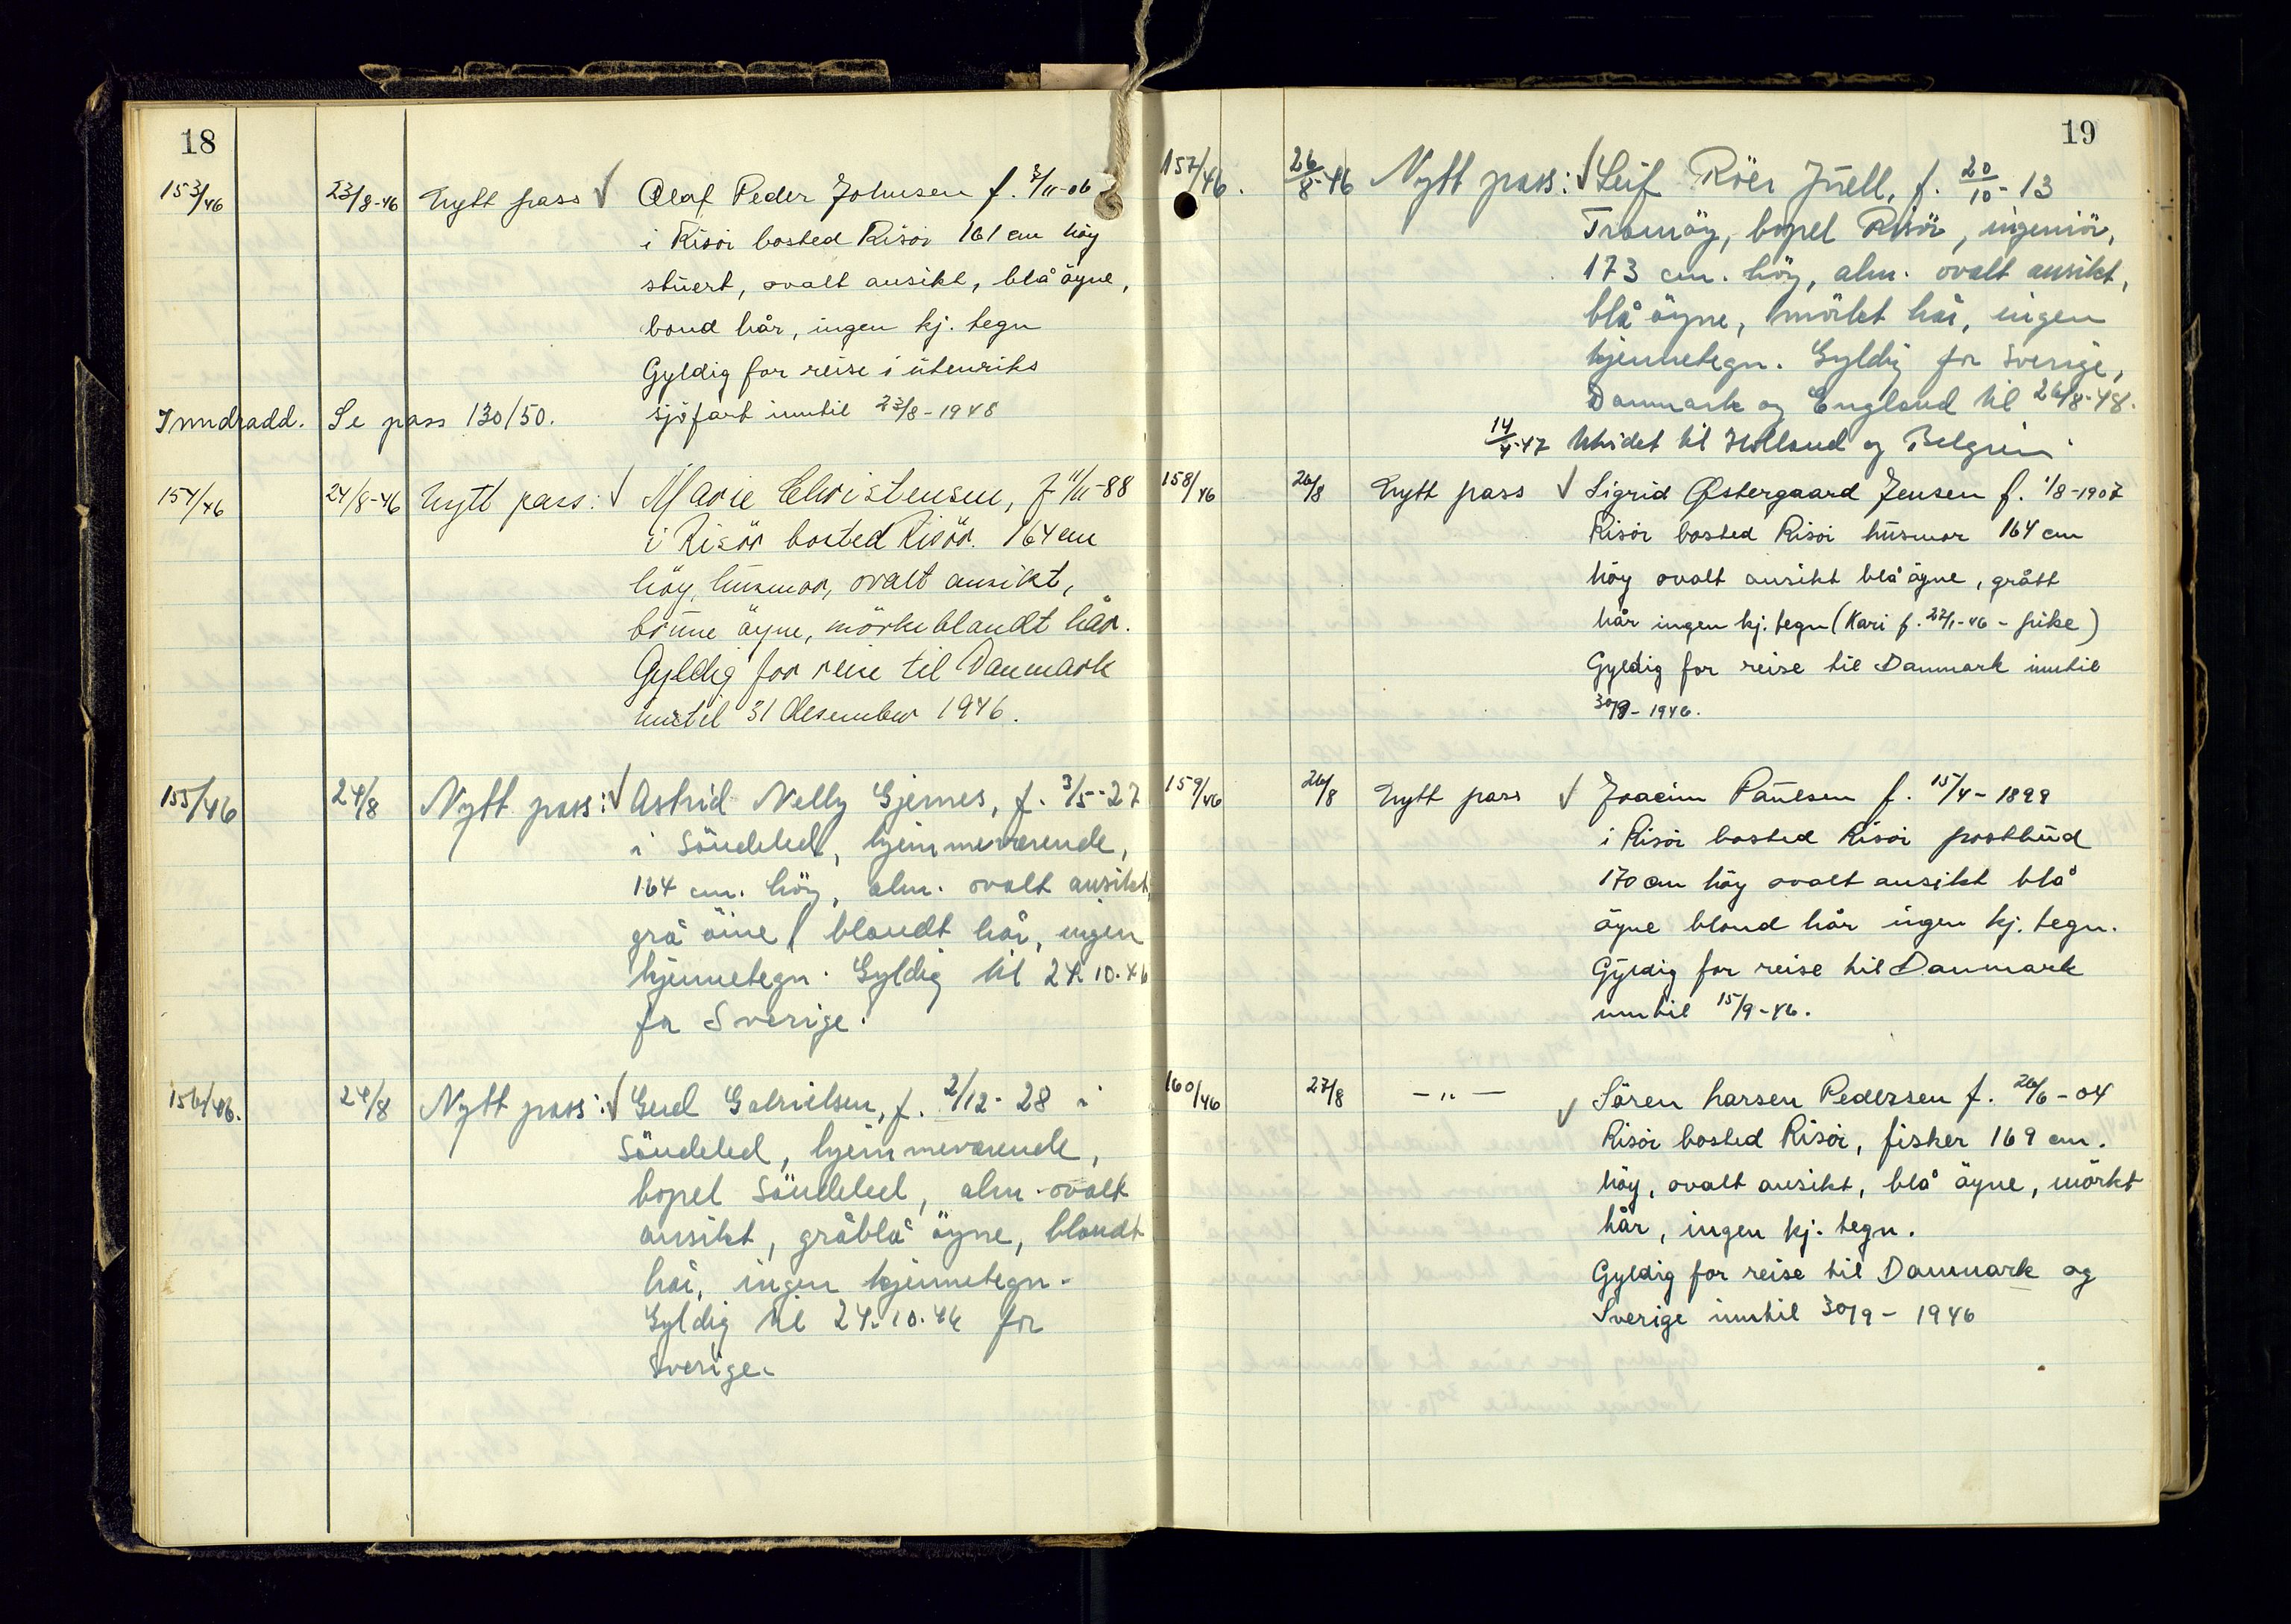 18
153/46 23/8-46 Nytt pass ✓ Olaf Peder Johnsen f. /11-06
i Risör bosted Risör 161 cm höy
stuert, ovalt ansikt, blå öyne,
bond hår, ingen kj. tegn
Gyldig for reise i utenriks
sjöfart inntil 23/8-1948
Inndradd. Se pass 130/50.
154/46 24/8-46 Nytt pass: ✓ Marie Christensen, f 11/11-88
i Risör bosted Risör. 164 cm
höy, husmor, ovalt ansikt,
brune öyne, mörkeblondt hår.
Gyldig for reise til Danmark
inntil 31 desember 1946.
155/46 24/8 Nytt pass: ✓ Astrid Nelly Gjernes, f. 3/5-27
i Söndeled, hjemmeværende,
164 cm. höy, alm. ovalt ansikt,
grå öine, blondt hår, ingen
kjennetegn. Gyldig til 24.10.46
for Sverige.
156/46. 24/8 Nytt pass: ✓ Gerd Gabrielsen, f. 2/12-28 i
Söndeled, hjemmeværende,
bopel Söndeled, alm. ovalt
ansikt, gråblå öyne, blondt
hår, ingen kjennetegn.
Gyldig til 24.10.46 for
Sverige.
19
157/46. 26/8-46 Nytt pass: ✓ Leif Röer Juell, f. 20/10-13
Tromöy, bopel Risör, ingeniör,
173 cm. höy, alm. ovalt ansikt,
blå öyne, mörkt hår, ingen
kjennetegn. Gyldig for Sverige,
Danmark og England til 26/8-48.
14/4-47 Utvidet til Holland og Belgien.
158/46 26/8 Nytt pass ✓ Sigrid Østergaard Jensen f. 1/8-1907
Risör bosted Risör husmor 164 cm
höy ovalt ansikt blå öyne, grått
hår ingen kj. tegn (Kari f. 22/1-46 - pike)
Gyldig for reise til Danmark inntil
30/9-1946.
159/46 26/8 Nytt pass ✓ Joacim Paulsen f. 15/4-1899
i Risör bosted Risör postbud
170 cm höy ovalt ansikt blå
öyne blond hår ingen kj. tegn.
Gyldig for reise til Danmark
inntil 15/9-46.
160/46 27/8 - " - ✓ Sören Larsen Pedersen f. 26/6-04
Risör bosted Risör, fisker 169 cm.
höy, ovalt ansikt, blå öyne, mörkt
hår, ingen kj. tegn.
Gyldig for reise til Danmark og
Sverige inntil 30/9-1946